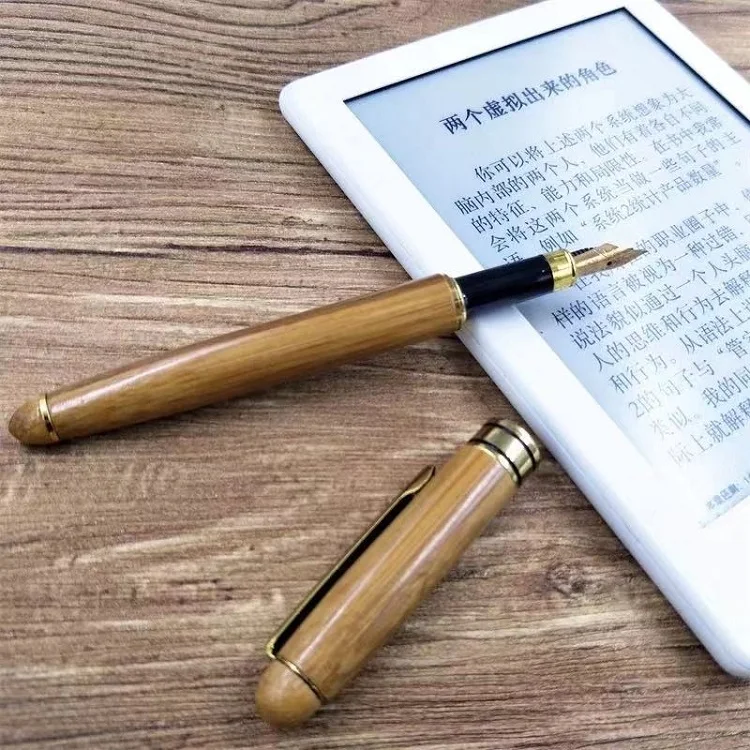 两个虚拟出来的角色
你可以将上述两个系统想象为大
脑内部的两个人，他们有着各自不同
的特征、能力和局限性。在书中我常
会将这两个系统当做一些句子的主
语，例如“系统2统计产品数量”。
的职业圈子中，
样的语言被视为一种过错，
说法貌似通过一个人头脑
人的思维和行为去解
和行为。从语法上
2的句子与“管
类似。我的同
际上就解释